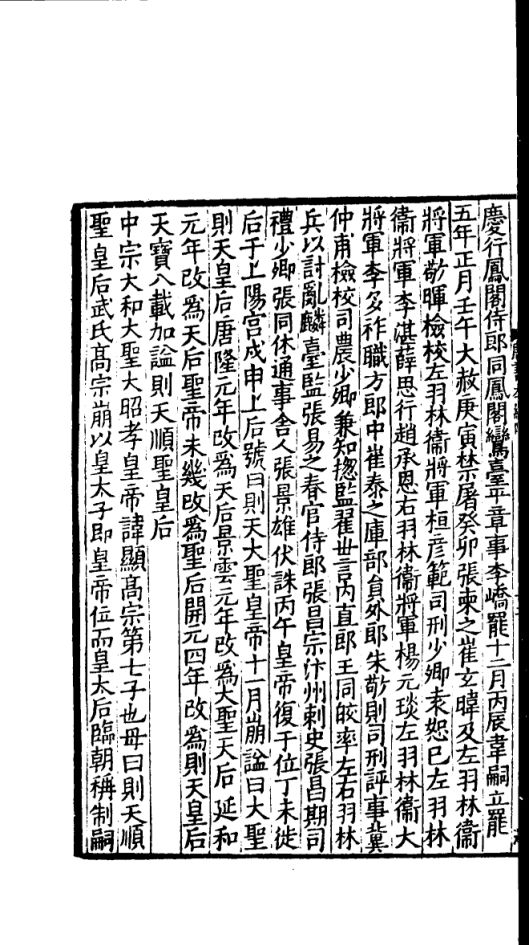 慶行鳳閣侍郎同鳳閣鸞臺平章事李嶠罷十二月丙辰韋嗣立罷
五年正月壬午大赦庚寅禁屠癸卯張柬之崔玄暐及左羽林衞
將軍敬暉檢校左羽林衞將軍桓彥範司刑少卿袁恕已左羽林
衞將軍李湛薛思行趙承恩右羽林衞將軍楊元琰左羽林衞大
將軍李多祚職方郎中崔泰之庫部負外郎朱敬則司刑評事冀
仲甫檢校司農少卿兼知揔監翟丗言內直郎王同皎率左右羽林
兵以討亂麟臺監張易之春官侍郎張昌宗汴州刺史張昌期司
禮少卿張同休通事舍人張景雄伏誅丙午皇帝復于位丁未徙
后于上陽宮戊申上后號曰則天大聖皇帝十一月崩謚曰大聖
則天皇后唐隆元年改爲天后景雲元年改爲大聖天后延和
元年改爲天后聖帝未幾改爲聖后開元四年改爲則天皇后
天寶八載加謚則天順聖皇后
中宗大和大聖大昭孝皇帝諱顯高宗第七子也母曰則天順
聖皇后武氏高宗崩以皇太子即皇帝位而皇太后臨朝稱制嗣